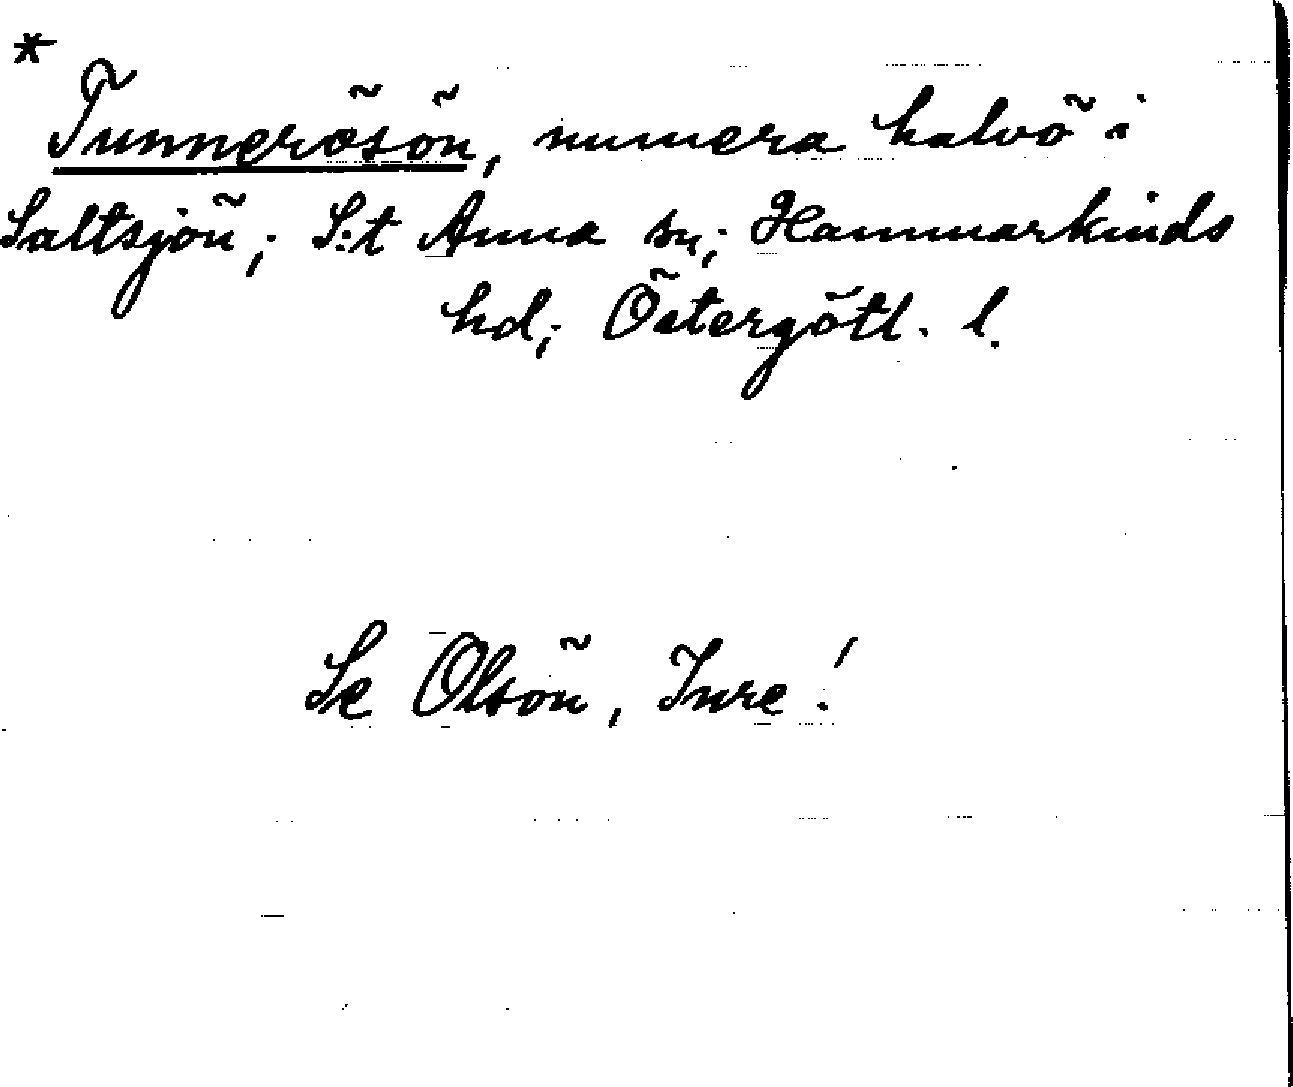 *
Tunnerösön, numera halvö i
Saltsjön; S:t Anna sn; Hammarkinds
hd; Östergötl. l.
Se Olsön, Inre!